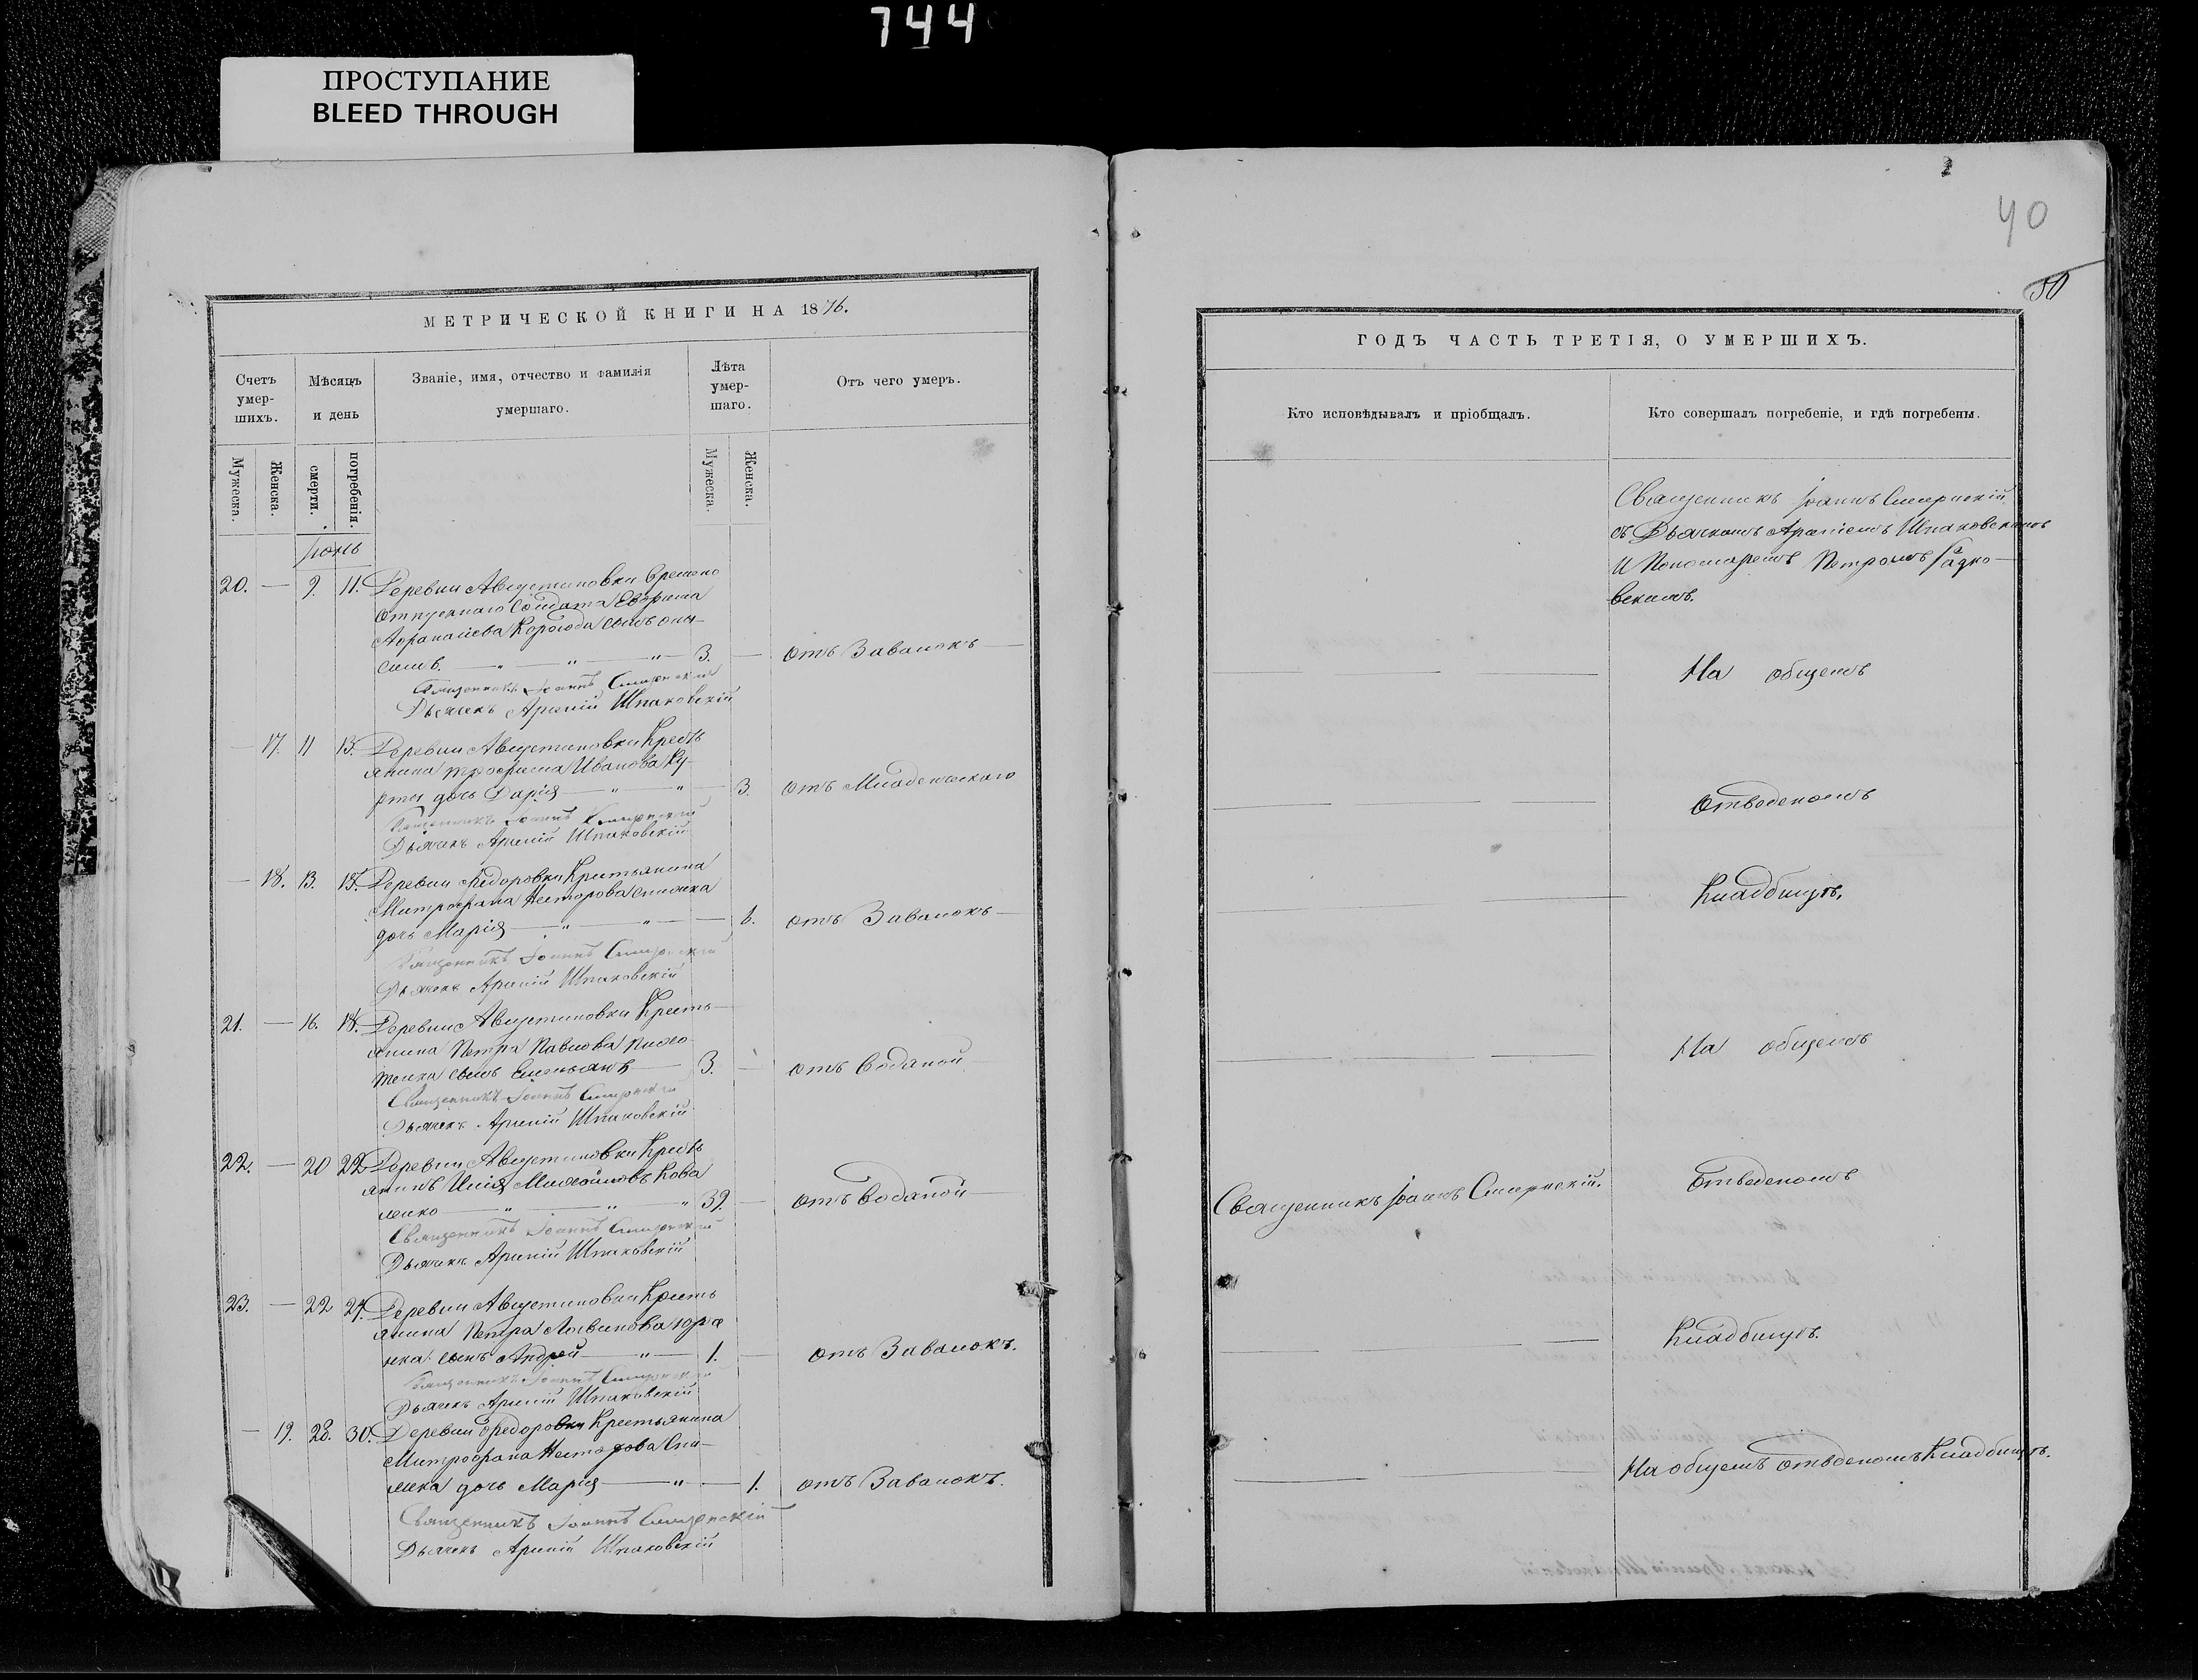 744
ПРОСТУПАНИЕ
BLEED THROUGH
40
50
МЕТРИЧЕСКОЙ КНИГИ НА 1876.
Счетъ умер-шихъ.
Мѣсяцъ и день
Званіе, имя, отчество и фамилія умершаго.
Лѣта умер-шаго.
Отъ чего умеръ.
Мужеска.
Женска.
смерти.
погребенія.
Мужеска.
Женска.
Іюнь
20. — 9. 11. Деревни Августиновки Временно
отпускнаго Солдата Евфима
Афанасіева сынъ Они-
симъ. — " — " — " — 3. — отъ Завалокъ —
Священникъ Іоаннъ Смирнскій
Дьячекъ Арсеній Шпаковскій
— 17. 11 13. Деревни Августиновки Кресть
янина Трофима Иванова Ку-
дочь Дарія — " — " — 3. отъ Младенческаго
Священникъ Іоаннъ Смирнскій
Дьячекъ Арсеній Шпаковскій
— 18. 13. 15. Деревни Федоровки Крестьянина
Митрофана Несторова
дочь Марія — " — " — 6. отъ Завалокъ —
Священникъ Іоаннъ Смирнскій
Дьячекъ Арсеній Шпаковскій
21. — 16. 18. Деревни Августиновки Кресть-
янина Петра Павлова
сынъ Емельянъ — 3. — отъ Водяной
Священникъ Іоаннъ Смирнскій
Дьячекъ Арсеній Шпаковскій
22. — 20 22 Деревни Августиновки Кресть
янинъ Илія Михайловъ Кова
ленко — " — " — " 39. — отъ Водяной —
Священникъ Іоаннъ Смирнскій
Дьячекъ Арсеній Шпаковскій
23. — 22 24. Деревни Августиновки Кресть
янина Петра Логвинова Юрч
нка сынъ Андрей — " — 1. — отъ Завалокъ.
Священникъ Іоаннъ Смирнскій
Дьячекъ Арсеній Шпаковскій
— 19. 28. 30. Деревни Федоровки Крестьянина
Митрофана Несторова
дочь Марія — " — 1. отъ Завалокъ.
Священникъ Іоаннъ Смирнскій
Дьячекъ Арсеній Шпаковскій
ГОДЪ ЧАСТЬ ТРЕТІЯ, О УМЕРШИХЪ.
Кто исповѣдывалъ и пріобщалъ.
Кто совершалъ погребеніе, и гдѣ погребены.
Священникъ Іоаннъ Смирнскій
съ Дьячкомъ Арсеніемъ Шпаковскимъ
и Пономаремъ Петромъ
вскимъ.
На общемъ
отведеномъ
Кладбищѣ.
На общемъ
Священникъ Іоаннъ Смирнскій.
отведеномъ
Кладбищѣ.
На общемъ отведеномъ Кладбищѣ.